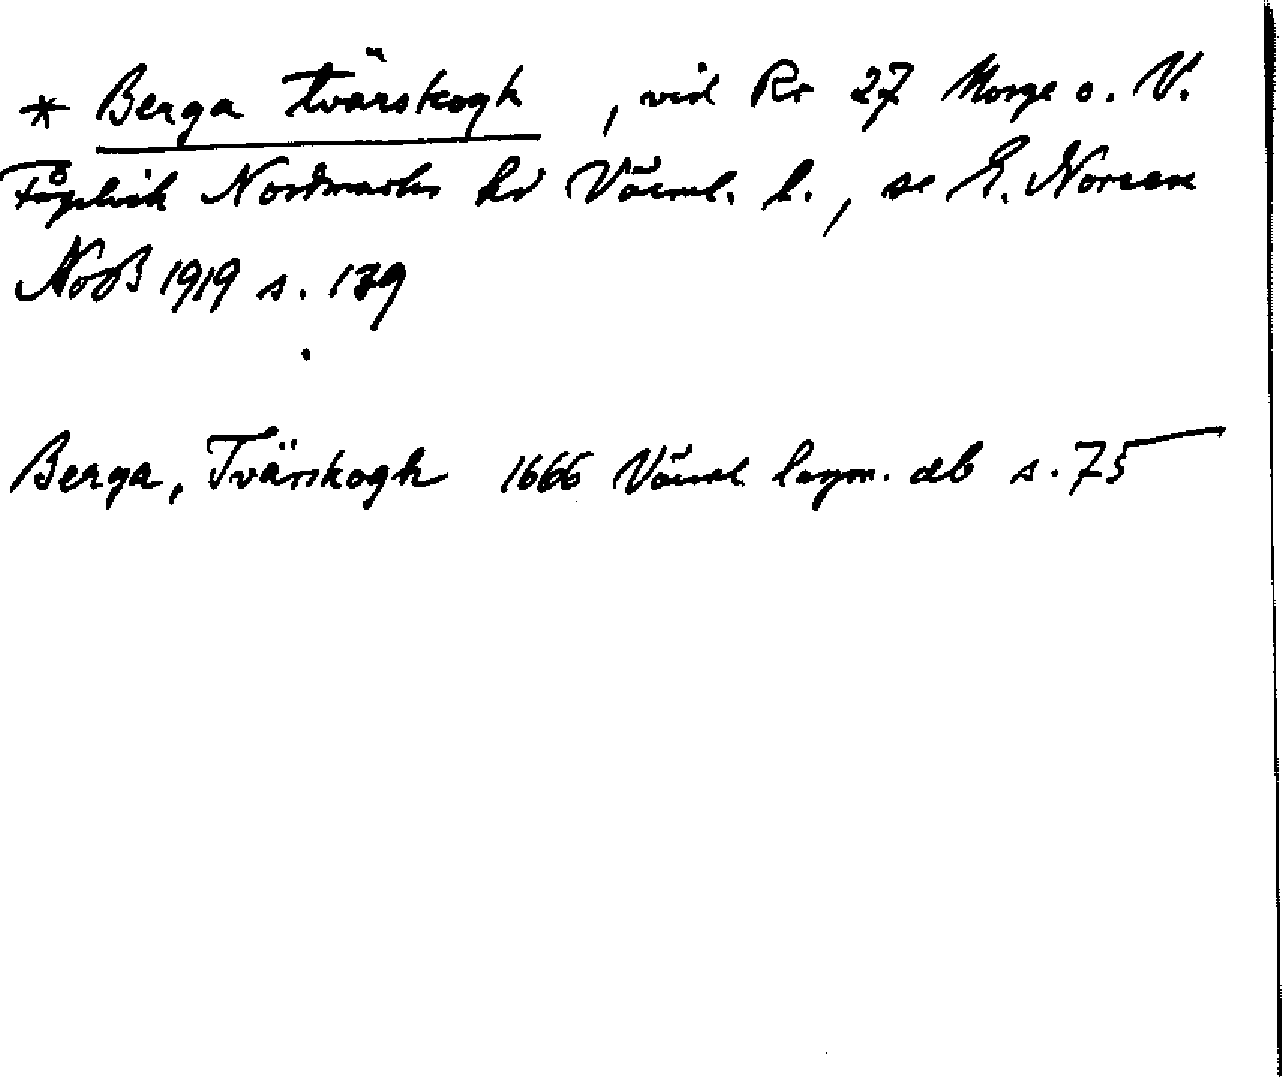 * Berga tvärskogh , vid Rr 27 Norge o. V.
Fågelvik Nordmarks hd Värml. l., se E. Noreen
NoB 1919 s. 139
Berga, Tvärskogh 1666 Värml lagm. db s. 75